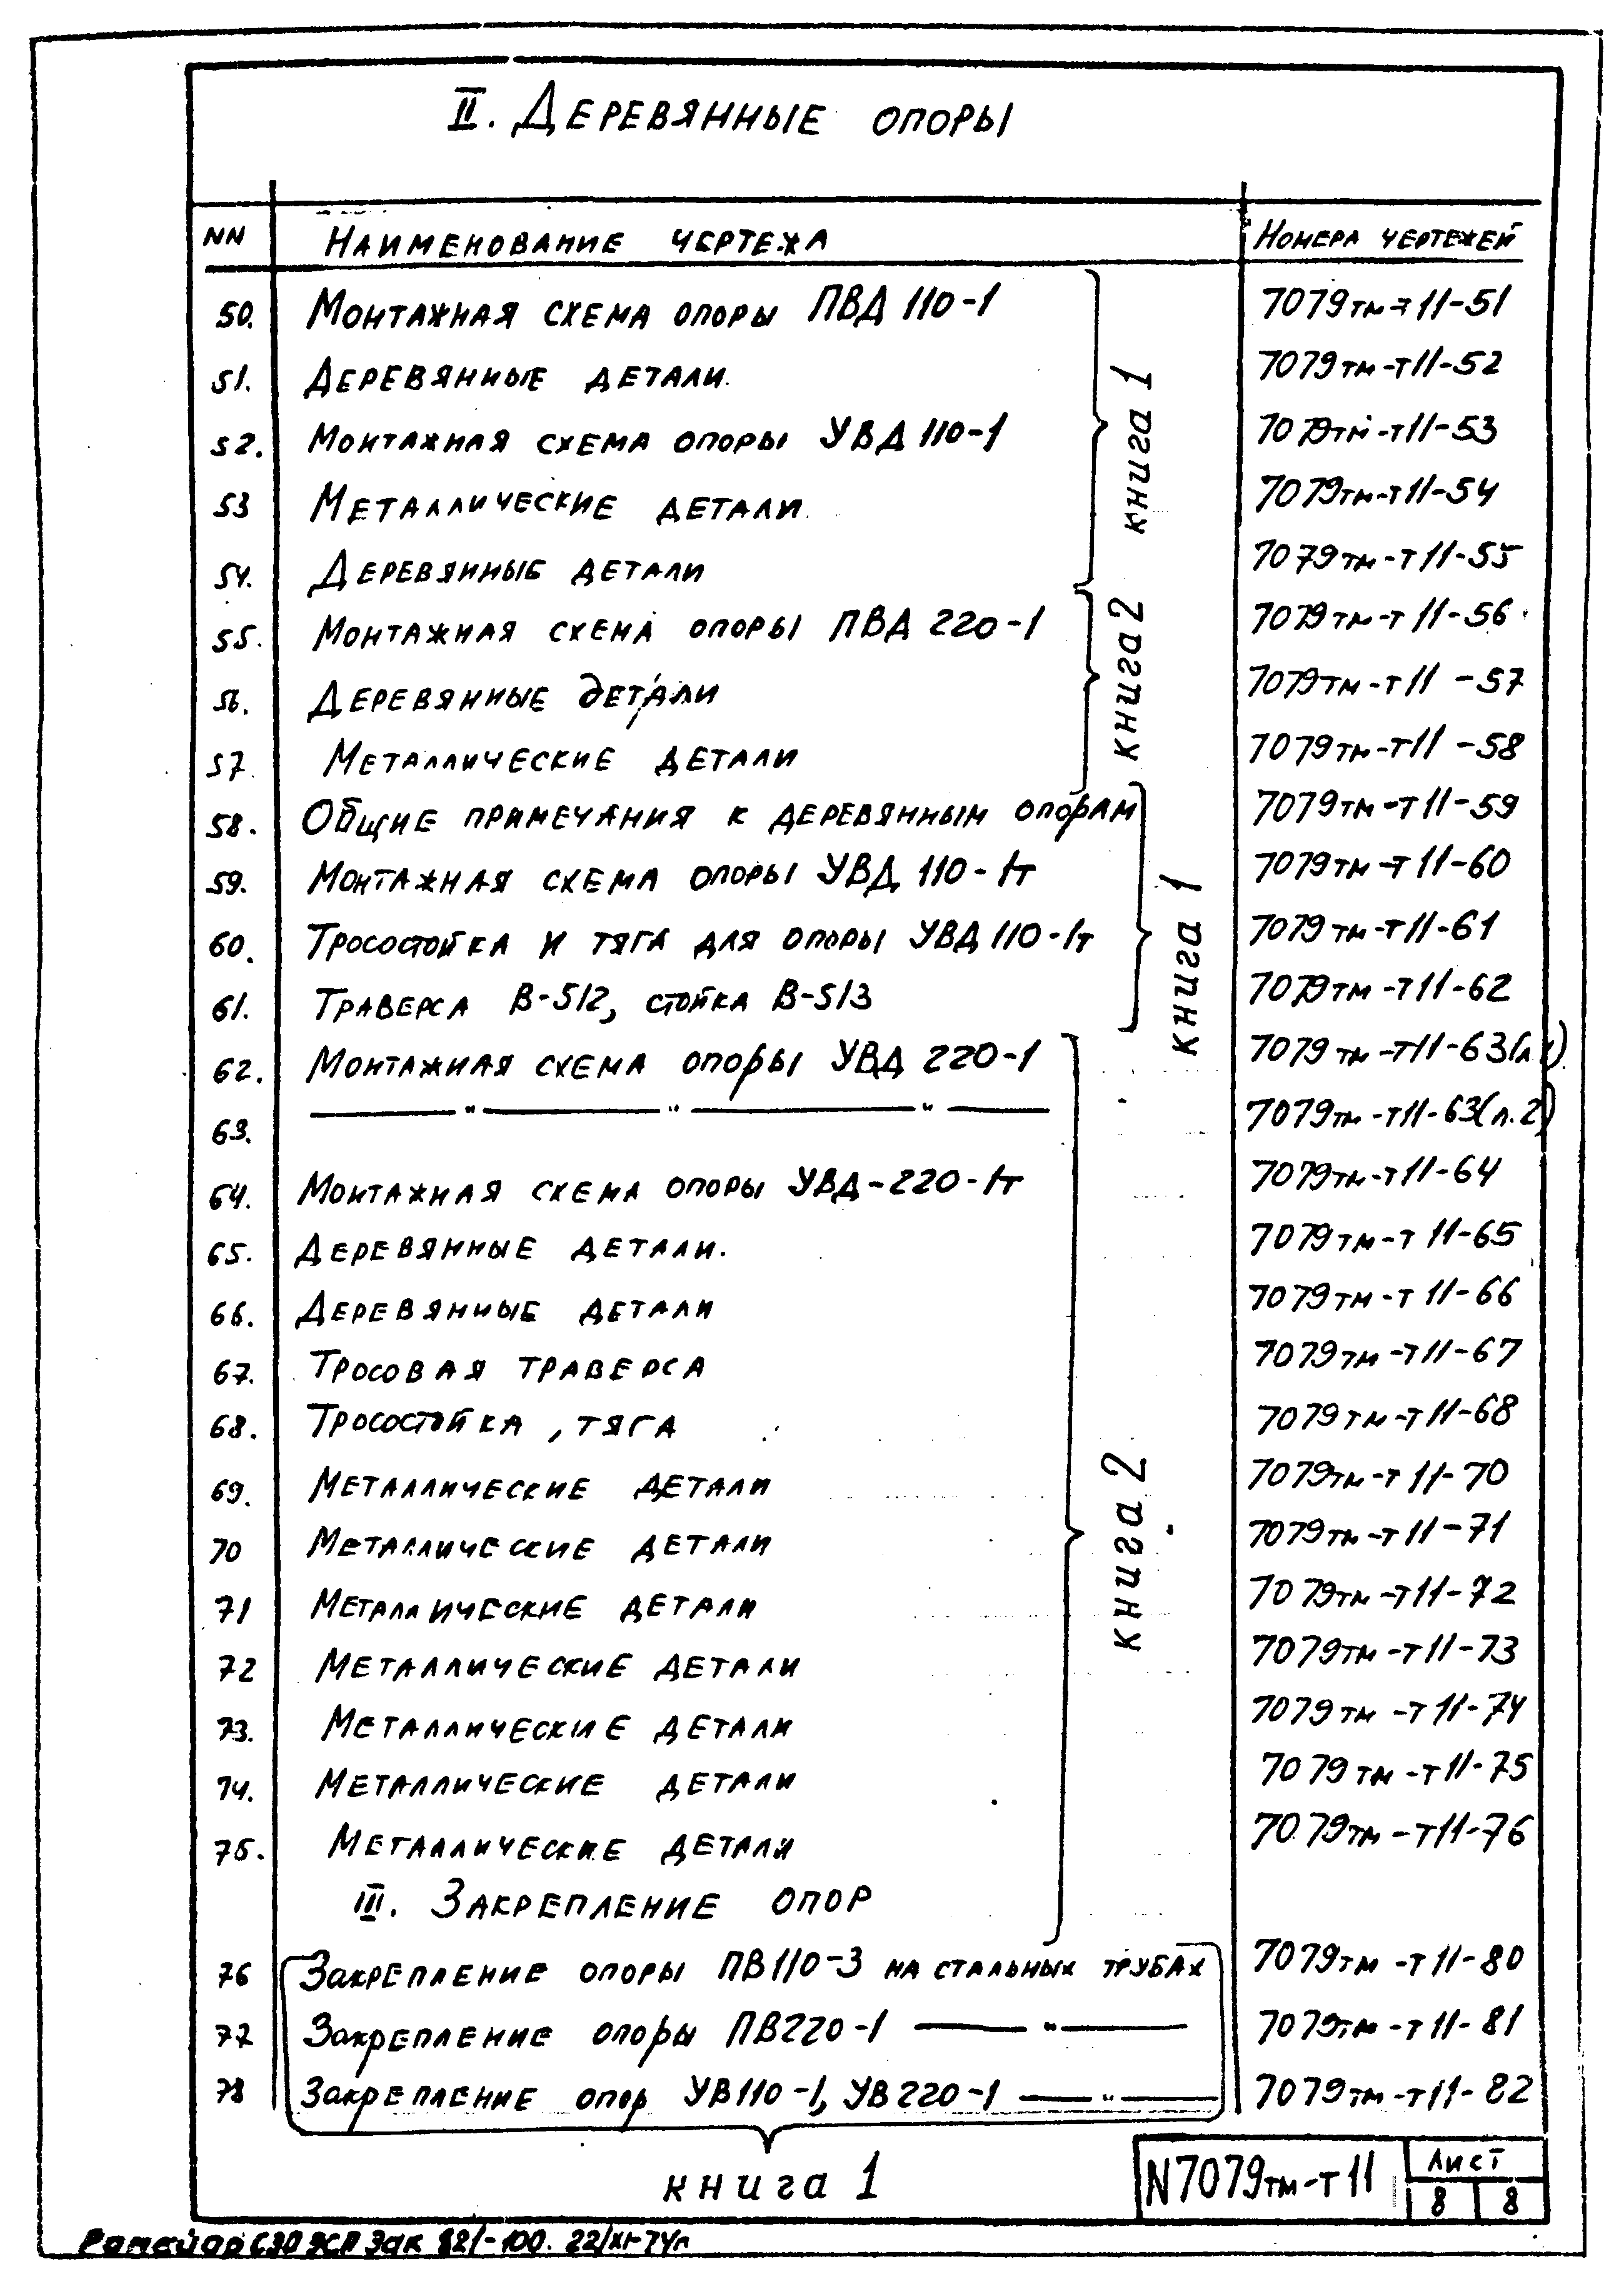 II. Деревянные опоры
NN Наименование чертежа Номера чертежей
50. Монтажная схема опоры ПВД 110-1 7079тм-т11-51
51. Деревянные детали. 7079тм-т11-52
52. Монтажная схема опоры УВД 110-1 7079тм-т11-53
53 Металлические детали. 7079тм-т11-54
54. Деревянные детали 7079тм-т11-55
книга 1
55. Монтажная схема опоры ПВД 220-1 7079тм-т11-56
56. Деревянные детали 7079тм-т11-57
57. Металлические детали 7079тм-т11-58
книга 2
58. Общие примечания к деревянным опорам 7079тм-т11-59
59. Монтажная схема опоры УВД 110-1т 7079тм-т11-60
60. Тросостойка и тяга для опоры УВД 110-1т 7079тм-т11-61
61. Траверса В-512, стойка В-513 7079тм-т11-62
книга 1
62. Монтажная схема опоры УВД 220-1 7079тм-т11-63(л.1)
63. —"—"—"— 7079тм-т11-63(л.2)
64. Монтажная схема опоры УВД-220-1т 7079тм-т11-64
65. Деревянные детали. 7079тм-т11-65
66. Деревянные детали 7079тм-т11-66
67. Тросовая траверса 7079тм-т11-67
68. Тросостойка, тяга 7079тм-т11-68
69. Металлические детали 7079тм-т11-70
70 Металлические детали 7079тм-т11-71
71 Металлические детали 7079тм-т11-72
72 Металлические детали 7079тм-т11-73
73. Металлические детали 7079тм-т11-74
74. Металлические детали 7079тм-т11-75
75. Металлические детали 7079тм-т11-76
книга 2
III. Закрепление опор
76 Закрепление опоры ПВ110-3 на стальных трубах 7079тм-т11-80
77 Закрепление опоры ПВ220-1 —"— 7079тм-т11-81
78 Закрепление опор УВ110-1, УВ220-1 —"— 7079тм-т11-82
книга 1
N7079тм-т11 Лист
8 8
СЗО ЭСП Зак 821-100. 22/XI-74г